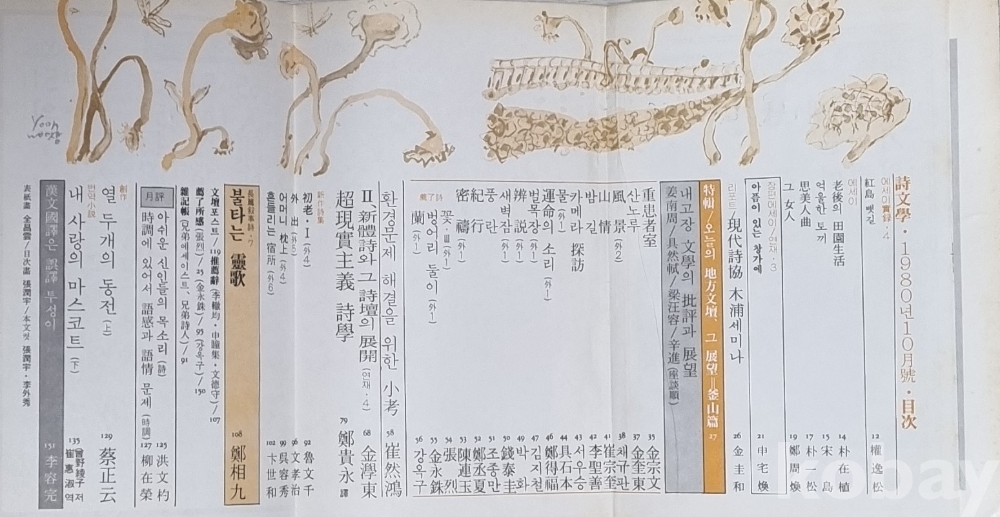 詩文學・1980년 10月號・目次
에세이實習・4
紅島 뱃길 12 權逸松
에세이
老後의 田園生活 14 朴在植
억울한 토끼 15 宋島
思美人曲 17 朴一松
그 女人 19 鄭周煥
장편에세이/연재・3
아픔이 있는 창가에 21 申宅煥
리포트/現代詩協 木浦세미나 26 金圭和
特輯/오늘의 地方文壇, 그 展望=釜山篇 27
내고장 文學의 批評과 展望
姜南周/具然軾/梁汪容/辛進(座談順)
重患者室 35 金宗文
산노루 37 金奎東
風景(外2) 38 채규판
山情 41 崔宗奎
밤길 42 李聖善
카메라 探訪 43 서우승
물(外1) 44 具石本
運命의 소리(外1) 46 鄭得福
벌목장(外1) 47 김지천
辨說(外1) 49 박화
새벽잠(外1) 50 錢泰圭
풍란(外1) 51 조종만
紀行 52 鄭丞夏
密禱(外1) 53 陳連玉
薦了詩
꽃・Ⅲ(外1) 54 張烈
벙어리 둘이(外1) 55 金永銖
蘭(外1) 56 강옥구
환경문제 해결을 위한 小考 58 崔然鴻
Ⅱ、新體詩와 그 詩壇의 展開(연재・4) 68 金澤東
超現實主義 詩學 79 鄭貴永 譯
新作詩集
初老・Ⅰ(外4) 92 魯文千
外出(外4) 96 文孝治
어머니 枕上(外4) 99 吳容秀
흔들리는 宿所(外6) 102 卞世和
長篇敍事詩・7
불타는 靈歌 108 鄭相九
文壇포스트/119 推薦辭(李轍均・申瞳集・文德守)/107
薦了所感(張烈)/25 (金永銖)/95 (강옥구)/150
雜記帳(兄弟에세이스트、兄弟詩人)/91
月評
아쉬운 신인들의 목소리(詩) 125 洪文杓
時調에 있어서 語感과 語情 문제(時調) 127 柳在榮
創作
열 두개의 동전(上) 129 蔡正云
번역小說
내 사랑의 마스코트(下) 135 曾野綾子 저 崔惠淑 역
漢文國譯은 誤譯 투성이 151 李容完
表紙畵 全昌雲/目次畵 張潤宇/本文컷 張潤宇・李外秀